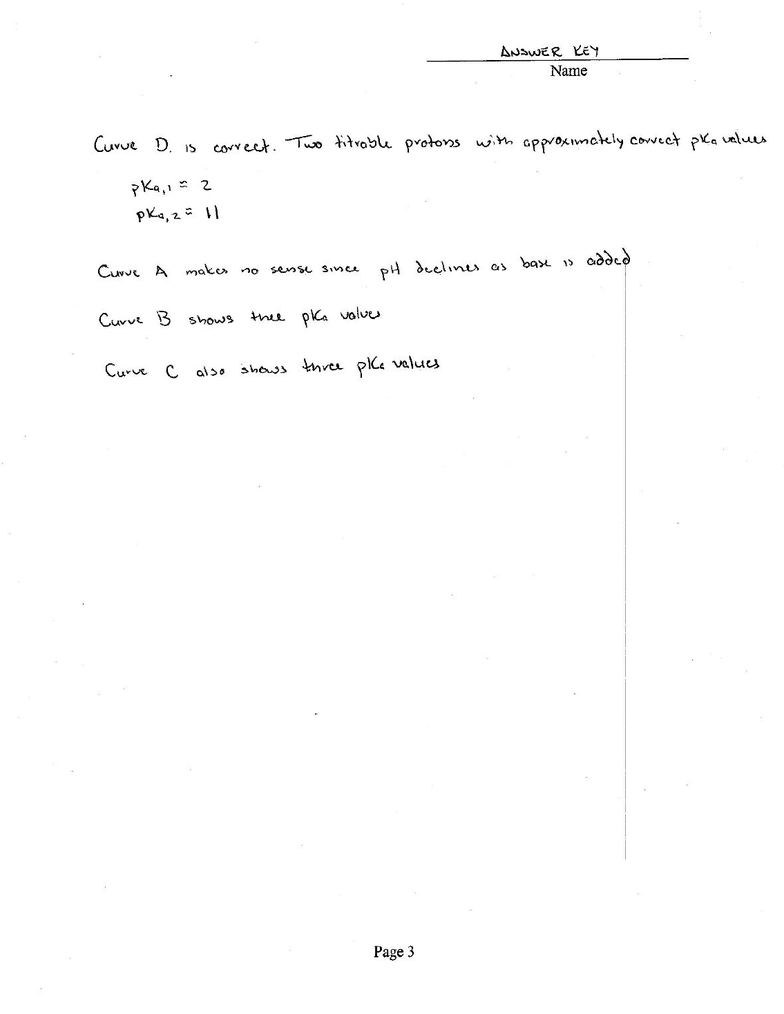 ANSWER KEY
Name
Curve D. is correct. Two titrable protons with approximately correct pKa values
pKa,1 ≈ 2
pKa,2 ≈ 11
Curve A makes no sense since pH declines as base is added
Curve B shows three pKa values
Curve C also shows three pKa values
Page 3